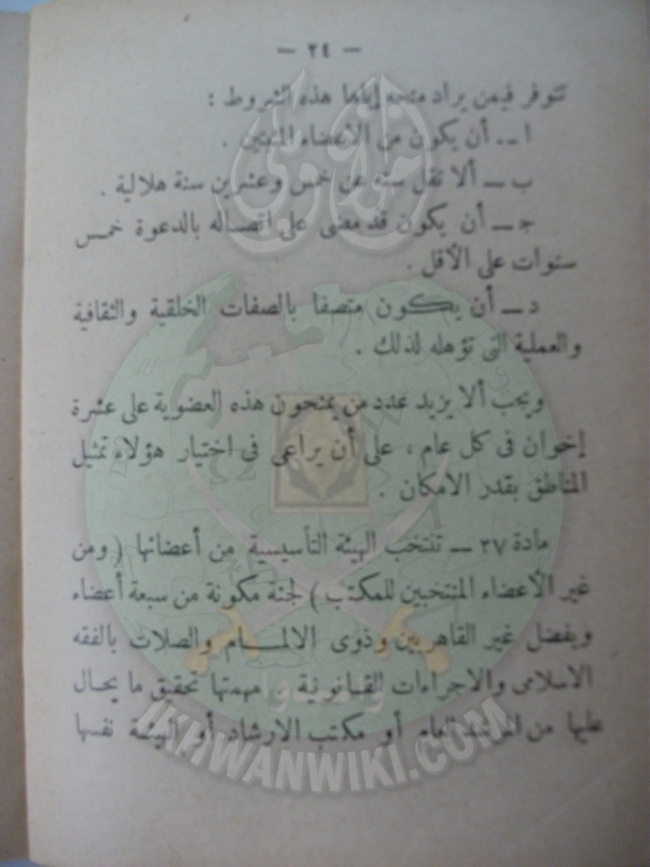 — ٢٤ —
تتوفر فيمن يراد منحه إياها هذه الشروط :
ا — أن يكون من الأعضاء المثبتين .
ب — ألا تقل سنه عن خمس وعشرين سنة هلالية .
ج — أن يكون قد مضى على اتصاله بالدعوة خمس
سنوات على الأقل .
د — أن يكون متصفا بالصفات الخلقية والثقافية
والعملية التى تؤهله لذلك .
ويجب ألا يزيد عدد من يمنحون هذه العضوية على عشرة
إخوان فى كل عام ، على أن يراعى فى اختيار هؤلاء تمثيل
المناطق بقدر الامكان .
مادة ٣٧ — تنتخب الهيئة التأسيسية من أعضائها ( ومن
غير الأعضاء المنتخبين للمكتب ) لجنة مكونة من سبعة أعضاء
ويفضل غير القاهريين وذوى الالمام والصلات بالفقه
الاسلامى والاجراءات القانونية . مهمتها تحقيق ما يحال
عليها من المرشد العام أو مكتب الارشاد أو الهيئة نفسها
وأعدوا
IKHWANWIKI.COM